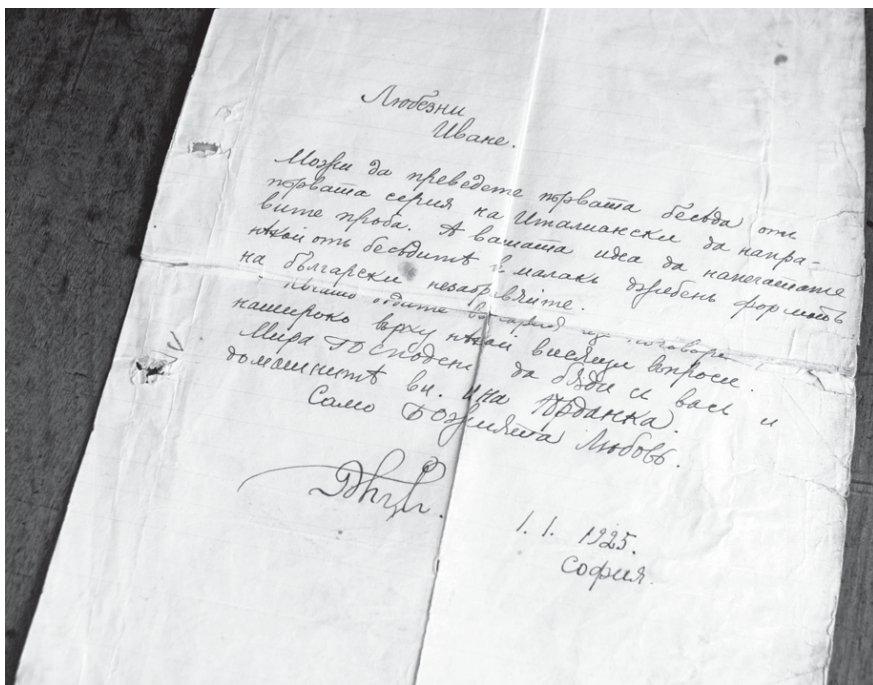 Любезни
Иване.
Можи да преведете първата бесѣда отъ
първата серия на Италиански да напра-
вите проба. А вашата идея да напечатате
нѣкои отъ бесѣдитѣ в малакъ джебенъ форматъ
на български незабравяйте.
нашироко върху нѣкои висящи въпроси.
Мира Господень да бѫди и васъ и
домашнитѣ ви. и на Йорданка.
Само Божията Любовь.
1. 1. 1925.
София.